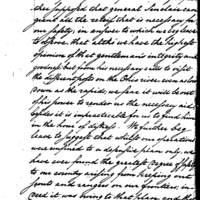 der, supposed that general Sinclair can
grant all the relief that is necessary for
our safety, in answer to which we beg leave
to observe, that altho we have the highest
opinion of that gentleman's integrity and
conduct, but from his necessary calls to visit
the different posts on the Ohio river, even as low
down as the rapids, we fear it will be out
of his power to render us the necessary aid
besides it is impracticable for us to find him
in the hour of distress. We further beg
leave to suggest that whilst our operations
were confined to a defensive plan only, we
have ever found the greatest degree of safety
to our country arising from keeping out
scouts and rangers on our frontiers, in
deed it was owing to that plan, and that